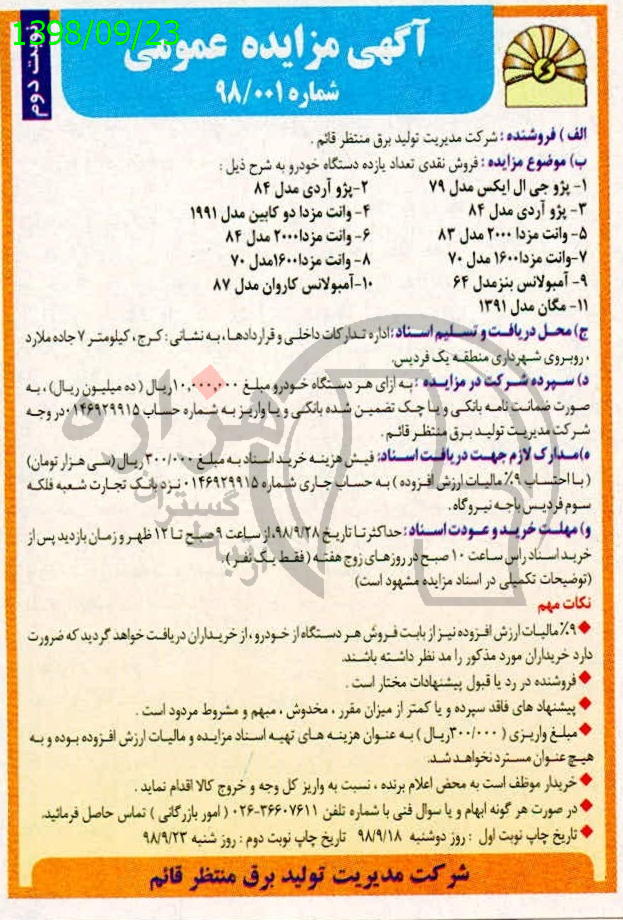 1398/09/23
نوبت دوم
آگهی مزایده عمومی
شماره ۹۸/۰۰۱
الف ) فروشنده : شرکت مدیریت تولید برق منتظر قائم .
ب) موضوع مزایده : فروش نقدی تعداد یازده دستگاه خودرو به شرح ذیل :
۱- پژو جی ال ایکس مدل ۷۹ ۲-پژو آردی مدل ۸۴
۳- پژو آردی مدل ۸۴ ۴- وانت مزدا دو کابین مدل ۱۹۹۱
۵- وانت مزدا ۲۰۰۰ مدل ۸۳ ۶- وانت مزدا۲۰۰۰ مدل ۸۴
۷-وانت مزدا۱۶۰۰ مدل ۷۰ ۸- وانت مزدا۱۶۰۰مدل ۷۰
۹- آمبولانس بنزمدل ۶۴ ۱۰-آمبولانس کاروان مدل ۸۷
۱۱- مگان مدل ۱۳۹۱
ج) محل دریافت و تسلیم اسناد :اداره تدارکات داخلی و قراردادها، به نشانی : کرج ، کیلومتر ۷ جاده ملارد
، روبروی شهرداری منطقه یک فردیس.
د) سپرده شرکت در مزایده : به ازای هر دستگاه خودرو مبلغ ۱۰,۰۰۰,۰۰۰ریال ( ده میلیون ریال) ، به
صورت ضمانت نامه بانکی و یا چک تضمین شده بانکی و یا واریز به شماره حساب ۰۱۴۶۹۲۹۹۱۵در وجه
شرکت مدیریت تولید برق منتظر قائم .
ه)مدارک لازم جهت دریافت اسناد: فیش هزینه خرید اسناد به مبلغ ۳۰۰/۰۰۰ ریال (سی هزار تومان)
( با احتساب ۹٪ مالیات ارزش افزوده ) به حساب جاری شماره ۰۱۴۶۹۲۹۹۱۵ نزد بانک تجارت شعبه فلکه
سوم فردیس باجه نیروگاه .
و) مهلت خرید و عودت اسناد : حداکثر تا تاریخ ۹۸/۹/۲۸، از ساعت ۹ صبح تا ۱۲ ظهر و زمان بازدید پس از
خرید اسناد راس ساعت ۱۰ صبح در روزهای زوج هفته ( فقط یک نفر) .
(توضیحات تکمیلی در اسناد مزایده مشهود است)
نکات مهم
◆ ۹٪ مالیات ارزش افزوده نیز از بابت فروش هر دستگاه از خودرو ، از خریداران دریافت خواهد گردید که ضرورت
دارد خریداران مورد مذکور را مد نظر داشته باشند.
◆ فروشنده در رد یا قبول پیشنهادات مختار است .
◆ پیشنهاد های فاقد سپرده و یا کمتر از میزان مقرر ، مخدوش ، مبهم و مشروط مردود است .
◆ مبلغ واریزی ( ۳۰۰/۰۰۰ریال ) به عنوان هزینه های تهیه اسناد مزایده و مالیات ارزش افزوده بوده و به
هیچ عنوان مسترد نخواهد شد.
◆ خریدار موظف است به محض اعلام برنده ، نسبت به واریز کل وجه و خروج کالا اقدام نماید .
◆ در صورت هر گونه ابهام و یا سوال فنی با شماره تلفن ۳۶۶۰۷۶۱۱-۰۲۶ ( امور بازرگانی ) تماس حاصل فرمائید.
◆ تاریخ چاپ نوبت اول : روز دوشنبه ۹۸/۹/۱۸ تاریخ چاپ نوبت دوم : روز شنبه ۹۸/۹/۲۳
شرکت مدیریت تولید برق منتظر قائم